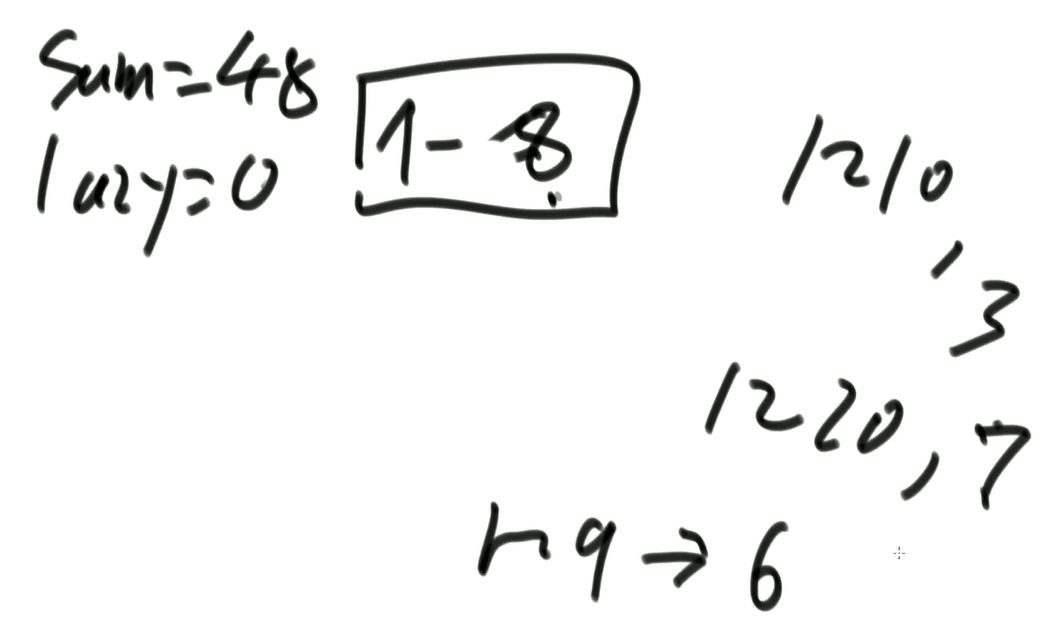 Sum=48
lazy=0
1-8
1210
,3
1220,7
rq→6